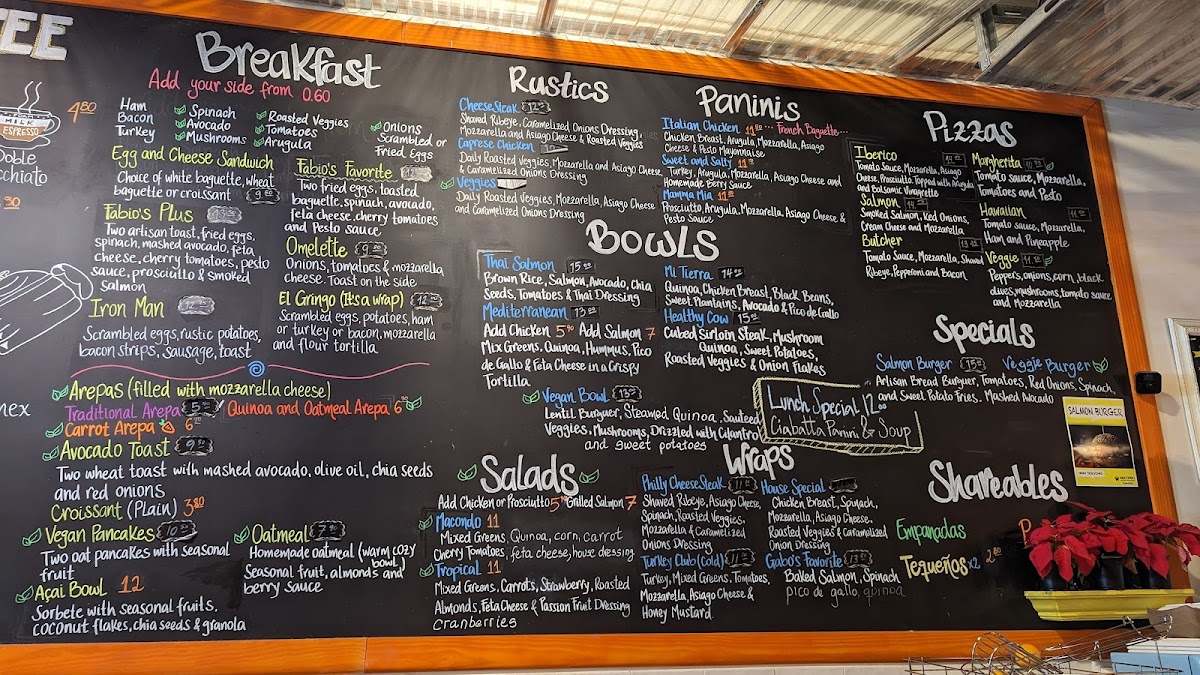 EE
MILK
ESPRESSO
4.80
Doble
cchiato
.30
nex
Breakfast
Add your side from 0.60
Ham
Bacon
Turkey
Spinach
Avocado
Mushrooms
Roasted Veggies
Tomatoes
Arugula
Onions
Scrambled or
Fried eggs
Egg and Cheese Sandwich
Choice of white baguette, wheat
baguette or croissant
Fabio's Plus
Two artisan toast, fried eggs,
spinach, mashed avocado, feta
cheese, cherry tomatoes, pesto
sauce, prosciutto & smoked
salmon
Iron Man
Scrambled eggs, rustic potatoes,
bacon strips, sausage, toast
Fabio's Favorite
Two fried eggs, toasted
baguette, spinach, avocado,
feta cheese, cherry tomatoes
and Pesto sauce
Omelette
Onions, tomatoes & mozzarella
cheese. Toast on the side
El Gringo (It's a wrap)
Scrambled eggs, potatoes, ham
or turkey or bacon, mozzarella
and flour tortilla
Arepas (filled with mozzarella cheese)
Traditional Arepa
Quinoa and Oatmeal Arepa 6
Carrot Arepa 6
Avocado Toast
Two wheat toast with mashed avocado, olive oil, chia seeds
and red onions
Croissant (Plain) 3.80
Vegan Pancakes
Two oat pancakes with seasonal
fruit
Açai Bowl 12
Sorbete with seasonal fruits,
coconut flakes, chia seeds & granola
Oatmeal
Homemade oatmeal (warm cozy
bowl)
Seasonal fruit, almonds and
berry sauce
Rustics
Cheese Steak
Shaved Ribeye, Caramelized Onions Dressing,
Mozzarella and Asiago Cheese & Roasted Veggies
Caprese Chicken
Daily Roasted Veggies, Mozzarella and Asiago Cheese,
& Caramelized Onions Dressing
Veggies
Daily Roasted Veggies, Mozzarella, Asiago Cheese
and Caramelized Onions Dressing
Paninis
Italian Chicken ... French Baguette...
Chicken Breast, Arugula, Mozzarella, Asiago
Cheese & Pesto Mayonnaise
Sweet and Salty
Turkey, Arugula, Mozzarella, Asiago Cheese and
Homemade Berry Sauce
Mamma Mia
Prosciutto, Arugula, Mozzarella, Asiago Cheese &
Pesto Sauce
Bowls
Thai Salmon
Brown Rice, Salmon, Avocado, Chia
Seeds, Tomatoes & Thai Dressing
Mediterranean
Add Chicken 5.90 Add Salmon 7
Mix Greens, Quinoa, Hummus, Pico
de Gallo & Feta Cheese in a Crispy
Tortilla
Mi Tierra
Quinoa, Chicken Breast, Black Beans,
Sweet Plantains, Avocado & Pico de Gallo
Healthy Cow
Cubed Sirloin Steak, Mushroom
Quinoa, Sweet Potatoes,
Roasted Veggies & Onion Flakes
Vegan Bowl
Lentil Burguer, Steamed Quinoa, Sauteed
Veggies, Mushrooms, Drizzled with Cilantro
and sweet potatoes
Lunch Special 12.00
Ciabatta Panini & Soup
Salads
Add Chicken or Prosciutto Grilled Salmon 7
Macondo 11
Mixed Greens, Quinoa, corn, carrot
Cherry Tomatoes, feta cheese, house dressing
Tropical 11
Mixed Greens, Carrots, Strawberry, Roasted
Almonds, Feta Cheese & Passion Fruit Dressing
Cranberries
Wraps
Philly Cheese Steak
Shaved Ribeye, Asiago Cheese,
Spinach, Roasted Veggies,
Mozzarella & Caramelized
Onions Dressing
Turkey Club (Cold)
Turkey, Mixed Greens, Tomatoes,
Mozzarella, Asiago Cheese &
Honey Mustard
House Special
Chicken Breast, Spinach,
Mozzarella, Asiago Cheese,
Roasted Veggies & Caramelized
Onion Dressing
Gabo's Favorite
Baked Salmon, Spinach
pico de gallo, quinoa
Pizzas
Iberico
Tomato Sauce, Mozzarella, Asiago
Cheese, Prosciutto Topped with Arugula
and Balsamic Vinagrette
Salmon
Smoked Salmon, Red Onions,
Cream Cheese and Mozzarella
Butcher
Tomato Sauce, Mozzarella, Shaved
Ribeye, Pepperoni and Bacon
Margherita
Tomato sauce, Mozzarella,
Tomatoes and Pesto
Hawaiian
Tomato sauce, Mozzarella,
Ham and Pineapple
Veggie
Peppers, onions, corn, black
olives, mushrooms, tomato sauce
and Mozzarella
Specials
Salmon Burger Veggie Burger
Artisan Bread Burguer, Tomatoes, Red Onions, Spinach,
and Sweet Potato Fries. Mashed Avocado
SALMON BURGER
Shareables
Empanadas
Tequeños x2